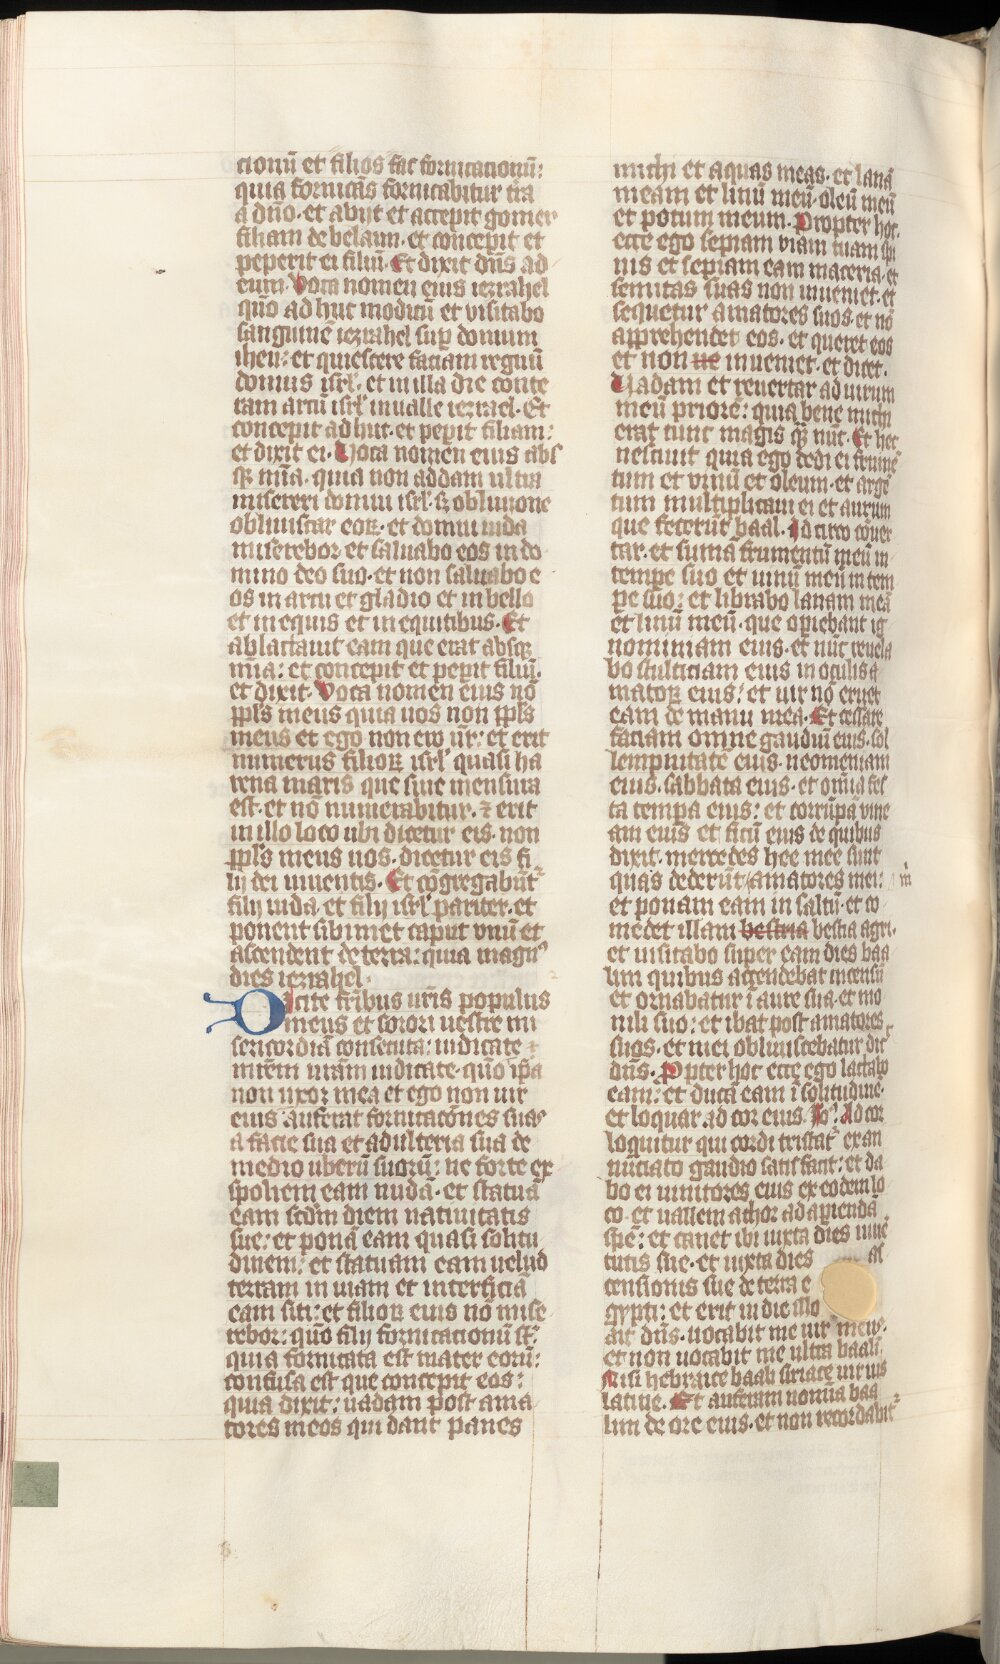 cionū et filios fac fornicationū:
quia fornicās fornicabitur t̄ra
a dn̄o. et abijt et accepit gomer
filiam debelaim. et concepit et
peperit ei filiū. Et dixit dn̄s ad
eum. Voca nomen eius iezrahel
qūo adhuc modicū et visitabo
sanguinē iezrahel sup̄ domum
iheu: et quiescere faciam regnū
domus isrl̄. et in illa die conte
ram arcū isrl̄ inualle iezrael. Et
concepit adhuc. et pep̄it filiam:
et dixit ei. Voca nomen eius abs
qꝫ mīa. quia non addam ultra
misereri domui isrl̄. sꝫ obliuione
obliuiscar eoꝝ. et domui iuda
miserebor et saluabo eos in do
mino deo suo. et non saluabo e
os in arcu et gladio et in bello
et in equis et in equitibus. Et
ablactauit eam que erat absqꝫ
mīa: et concepit et pep̄it filiū.
et dixit. Voca nomen eius nō
pp̄ls meus quia uos non pp̄ls
meus et ego non ero ur̄: et erit
numerus filioꝝ isrl̄ quasi ha
rena maris que sine mensura
est. et nō numerabitur. ⁊ erit
in illo loco ubi dicetur eis. non
pp̄ls meus uos. dicetur eis fi
lij dei uiuentis. Et cōgregabūt᷑
filij iuda et filij isrl̄ pariter. et
ponent sibimet caput vnū et
ascendent de terra: quia magnꝰ
dies iezrahel.
Dicite fr̄ibus ur̄is populus
meus et sorori uestre mi
sericordiā consecuta: iudicate
mr̄em ur̄am iudicate. qūo ip̄a
non uxor mea et ego non uir
eius auferat fornicacōnes suas
a facie sua et adulteria sua de
medio uberū suorū: ne forte ex
spoliem eam nudā. et statuā
eam scd̄m diem natiuitatis
sue: et ponā eam quasi solitu
dinem: et statuam eam uelud
terram in uiam et interficiā
eam siti: et filioꝝ eius nō mise
rebor: qūo filij fornicationū st̄:
quia fornicata est mater eorū:
confusa est que concepit eos:
quia dixit: uadam post ama
tores meos qui dant panes
michi et aquas meas. et lanā
meam et linū meū. oleū meū
et potum meum. Propter hoc.
ecce ego sepiam viam tuam spi
nis et sepiam eam maceria. et
semitas suas non inueniet. et
sequetur amatores suos. et nō
apprehendet eos. et queret eos
et non ue inueniet. et dicet.
Vadam et reuertar ad uirum
meū priorē: quia bene michi
erat tunc magis qꝫ nūc. Et hec
nesciuit quia ego dedi ei frumē
tum et vinū et oleum. et argē
tum multiplicaui ei et aurum
que fecerūt baal. Idcirco cōuer
tar. et sumā frumentū meū in
tempe suo et uinū meū in tem
pe suo: et librabo lanam meā
et linū meū. que op̄iebant ig
nominiam eius. et nūc reuela
bo stulticiam eius in oculis a
matoꝝ eius: et uir nō eruet
eam de manu mea. Et cessare
faciam omne gaudiū eius. sol
lempnitatē eius. neomeniam
eius. sabbata eius. et om̄ia fes
ta tempa eius: et corrūpā vine
am eius et ficū eius de quibus
dixit. mercedes hee mee sunt
quas dederūt amatores mei: m̄
et ponam eam in saltū. et co
medet illam bestria bestia agri.
et uisitabo super eam dies baa
lim quibus accendebat incensū
et ornabatur ī aure sua. et mo
nili suo: et ibat post amatores
suos. et mei obliuiscebatur dic̄
dn̄s. Propter hoc ecce ego lactabo
eam: et ducā eam ī solitudinē.
et loquar ad cor eius. Ad cor
loquitur qui cordi tristat᷑ ex an
nūciato gaudio satisfacit: et da
bo ei uinitores eius ex eodem lo
co. et uallem achor ad ap̄iendā
spē: et canet ibi iuxta dies iuuē
tutis sue. et iuxta dies as
censionis sue de terra e
gypti: et erit in die illo
ait dn̄s. uocabit me uir meus.
et non uocabit me ultra baali.
Nisi hebraice baali siriace uir ius
latine. Et auferam nomīa baa
lim de ore eius. et non recordabit᷑